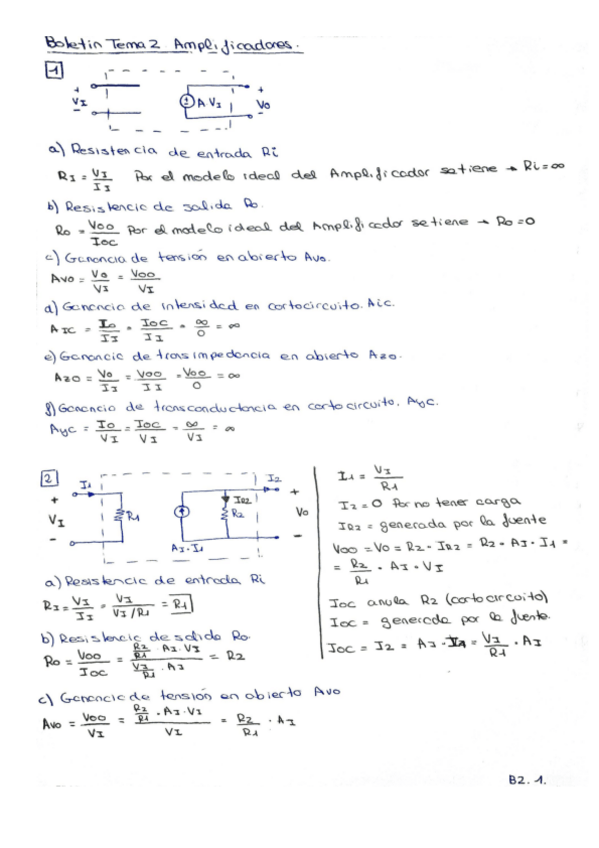 Boletin Tema 2 Amplificadores.
1
+ VI -
A·VI
+ Vo -
a) Resistencia de entrada Ri
RI = VI/II Por el modelo ideal del Amplificador se tiene → Ri = ∞
b) Resistencia de salida Ro.
Ro = Voo/Ioc Por el modelo ideal del Amplificador se tiene → Ro = 0
c) Ganancia de tensión en abierto Avo.
Avo = Vo/VI = Voo/VI
d) Ganancia de intensidad en cortocircuito. Aic.
AIC = Io/II = Ioc/II = ∞/0 = ∞
e) Ganancia de transimpedancia en abierto Azo.
Azo = Vo/II = Voo/II = Voo/0 = ∞
f) Ganancia de transconductancia en cortocircuito. Ayc.
Ayc = Io/VI = Ioc/VI = ∞/VI = ∞
2
I1 I2
+ VI -
R1
IR2
R2
+ Vo -
AI·I1
I1 = VI/R1
I2 = 0 Por no tener carga
IR2 = generada por la fuente
Voo = Vo = R2·IR2 = R2·AI·I1 =
= R2/R1 · AI·VI
Ioc anula R2 (cortocircuito)
Ioc = generada por la fuente.
Ioc = I2 = AI·I1 = VI/R1 · AI
a) Resistencia de entrada Ri
RI = VI/II = VI/(VI/R1) = R1
b) Resistencia de salida Ro.
Ro = Voo/Ioc = (R2/R1 · AI·VI)/(VI/R1 · AI) = R2
c) Ganancia de tensión en abierto Avo
Avo = Voo/VI = (R2/R1 · AI·VI)/VI = R2/R1 · AI
B2.1.